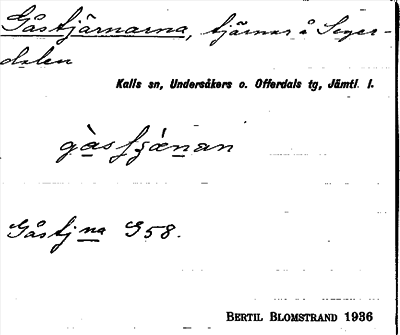 Gåstjärnarna, tjärnar å Soger-
dalen
Kalls sn, Undersåkers o. Offerdals tg, Jämtl. l.
gàsʃjǽnan
Gåstjna G58.
BERTIL BLOMSTRAND 1936